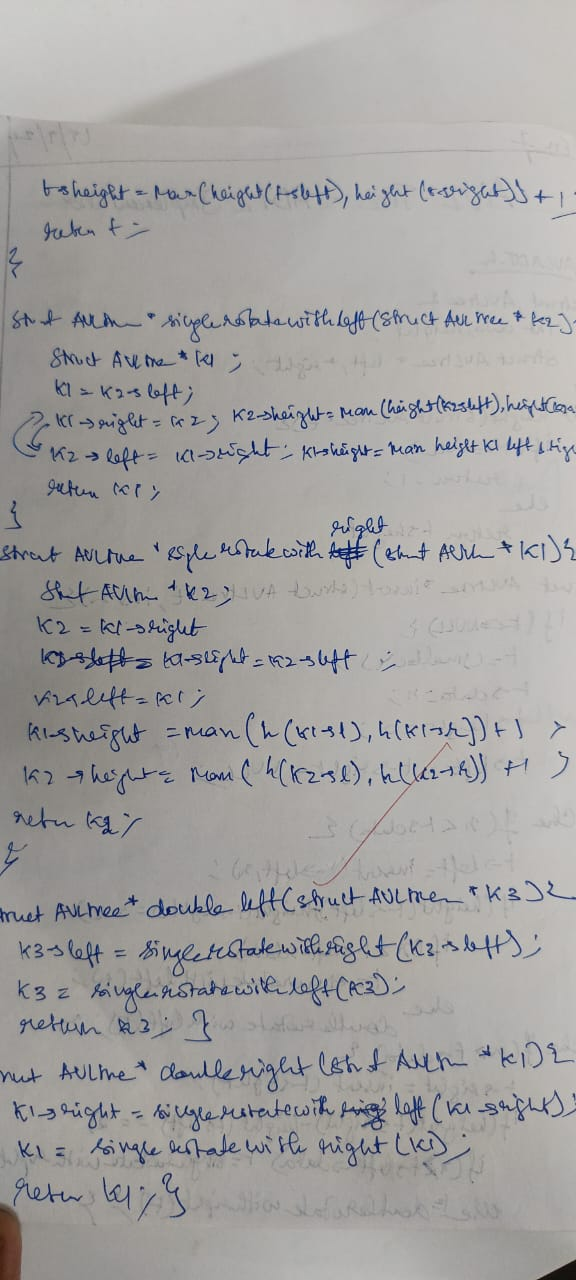 t→height = Max(height(t→left), height(t→right)) + 1;
return t;
}
Struct AVLTree * singlerotatewithleft(Struct AVLTree * K2)
Struct AVLTree * K1 ;
K1 = K2→left;
K1→right = K2; K2→height = Max(height(K2→left), height(
K2→left = K1→right; K1→height = Max height K1 left &
return K1;
}
Struct AVLTree * rotate with right (struct AVLTree * K1){
Struct AVLTree * K2;
K2 = K1→right
K1→right = K2→left ;
K2→left = K1;
K1→height = max(h(K1→l), h(K1→r))+1 ;
K2→height = Max(h(K2→l), h(K2→r)) +1 ;
return K2;
}
truct AVLTree* double left(struct AVLTree *K3){
K3→left = singlerotatewithright(K3→left);
K3 = singlerotatewithleft(K3);
return K3; }
AVLTree* doubleright (struct AVLTree *K1){
K1→right = singlerotatewith left (K1→right);
K1 = single rotate with right (K1);
return K1; }